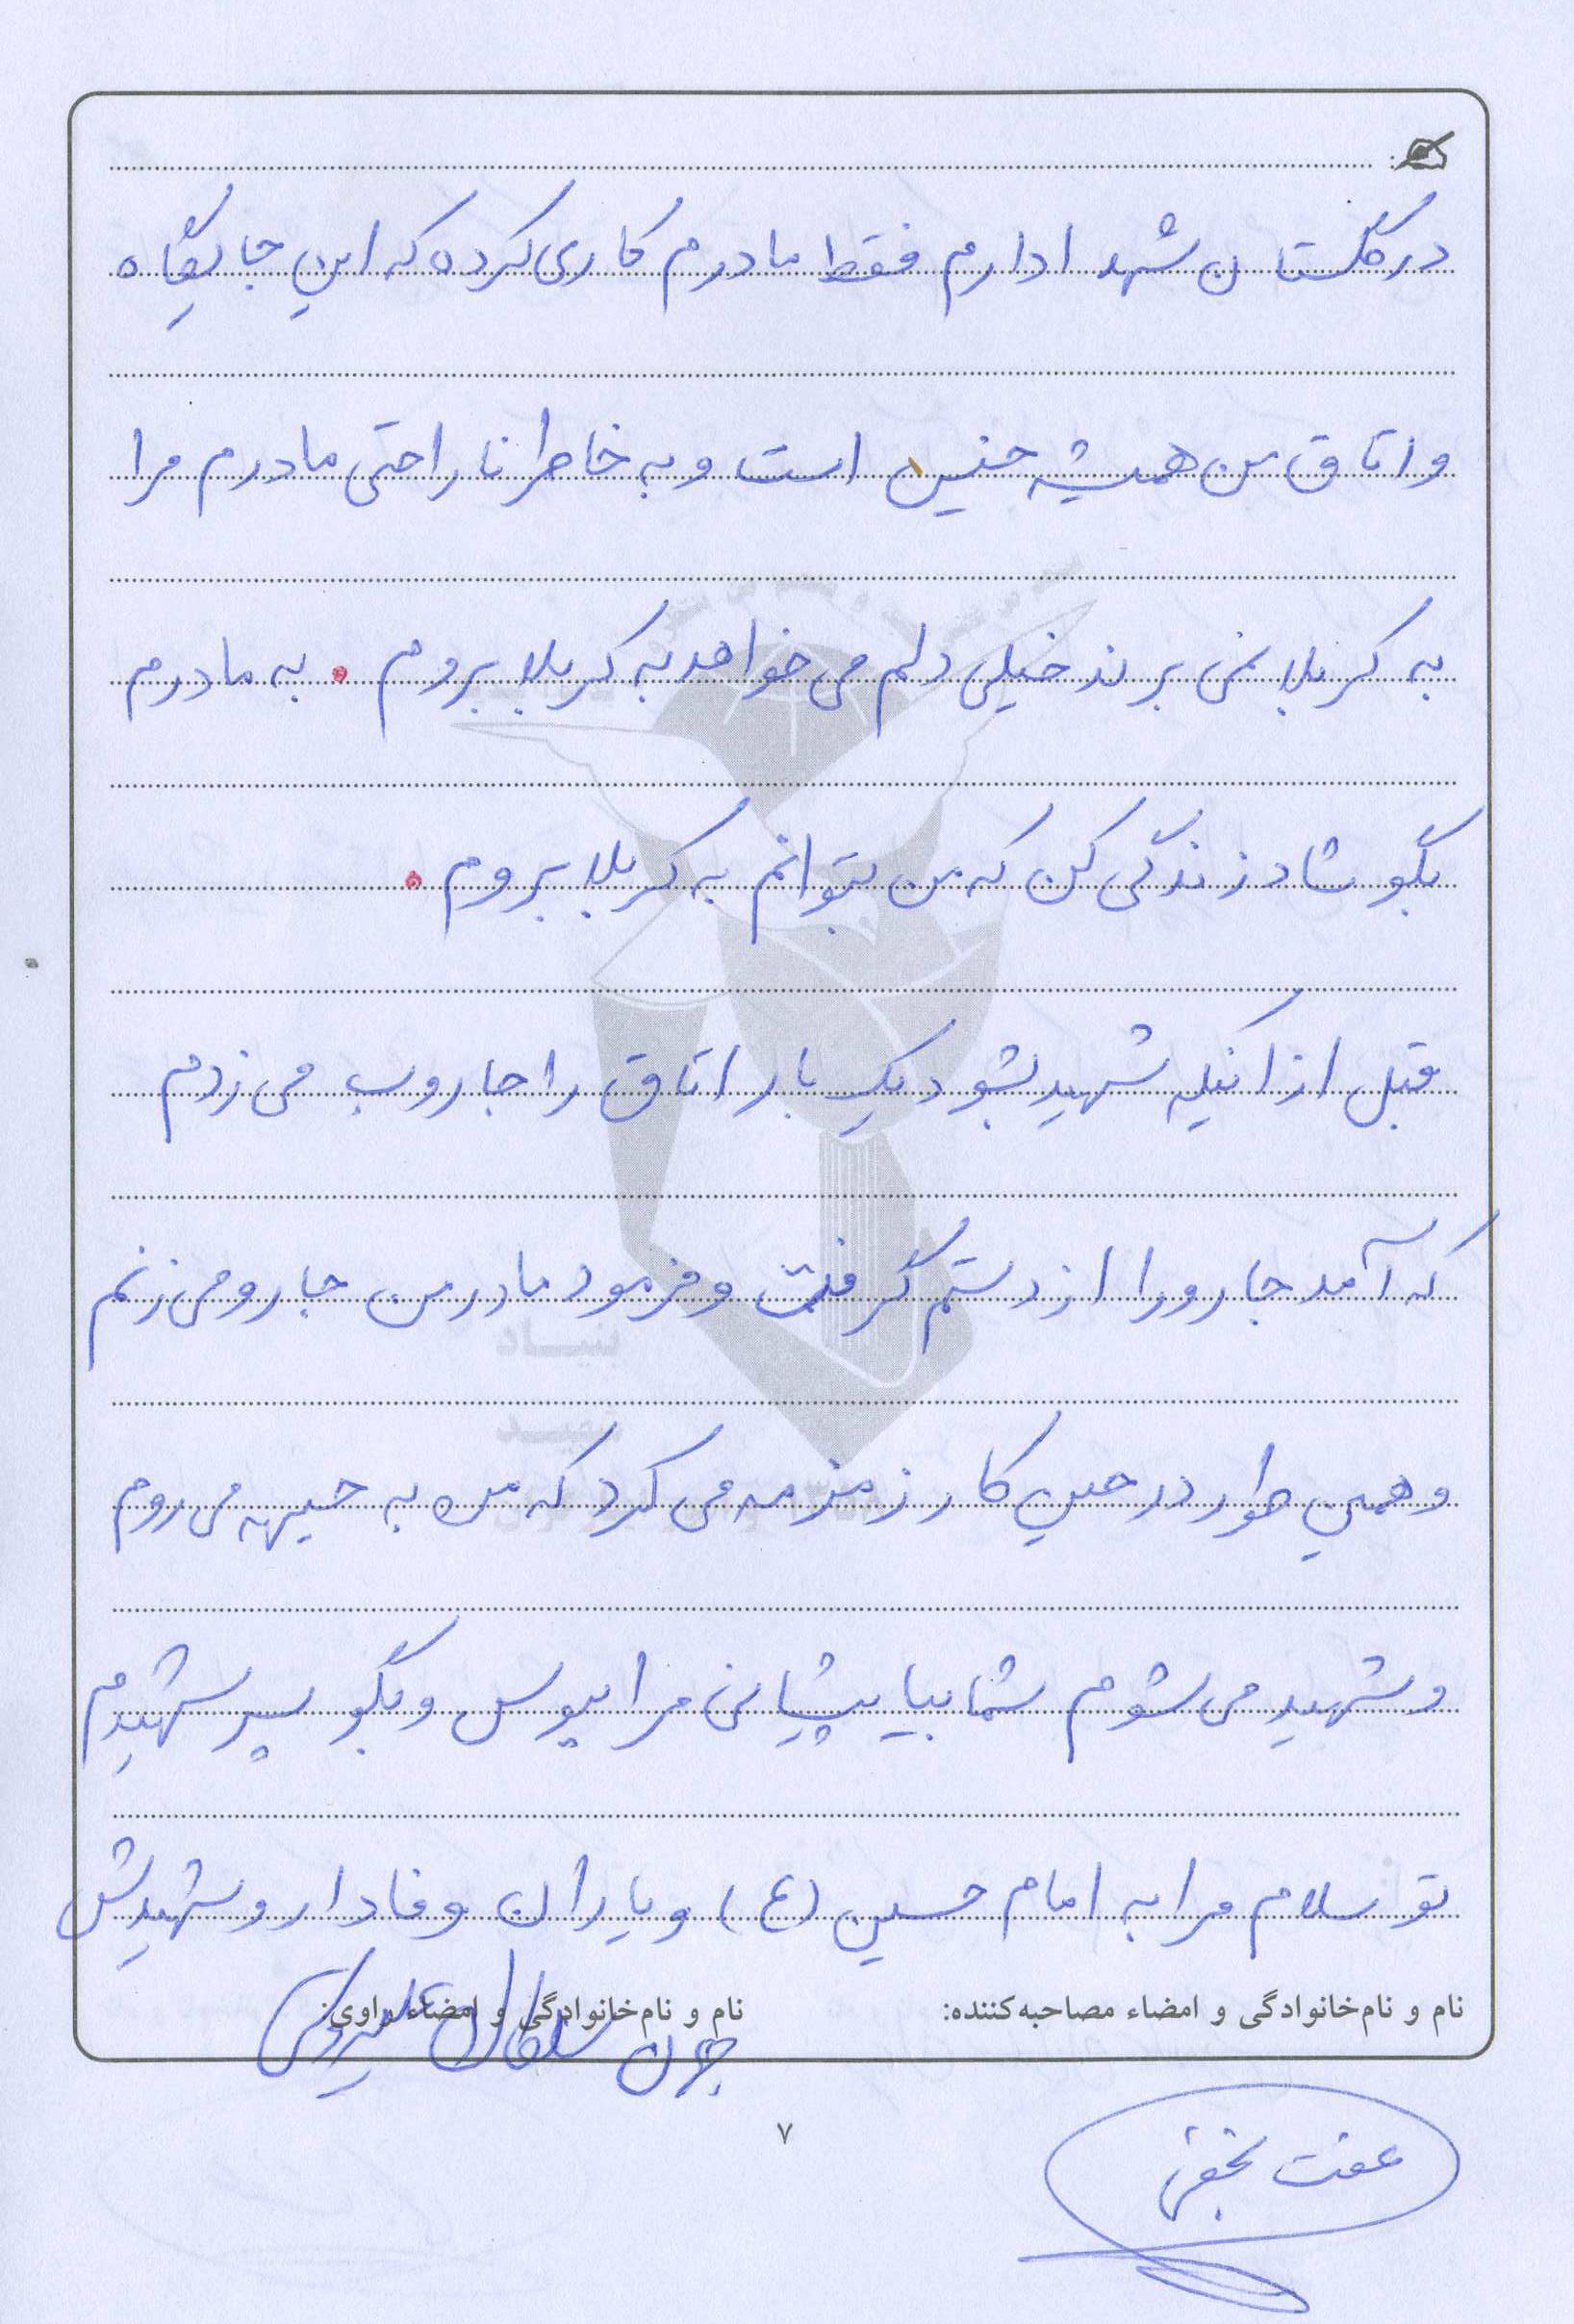 در گلستان شهدا دارم فقط مادرم کاری کرده که این جایگاه
و اتاق من همیشه خیس است و به خاطر ناراحتی مادرم مرا
به کربلا نمی برند خیلی دلم می خواهد به کربلا بروم . به مادرم
بگو شاد زندگی کن که من بتوانم به کربلا بروم .
قبل از اینکه شهید بشود یک بار اتاق را جاروب می زدم
که آمد جارو را از دستم گرفت و فرمود مادر من جارو می زنم
و همین طور در حین کار زمزمه می کرد که من به جبهه می روم
و شهید می شوم شما بیا پیشانی مرا ببوس و بگو پسر شهیدم
تو سلام مرا به امام حسین (ع) و یاران وفادار و شهیدش
نام و نام‌خانوادگی و امضاء مصاحبه‌کننده:
نام و نام‌خانوادگی و امضاء راوی:
سلطان
عفت نجفی
۷
بنیاد
شهید